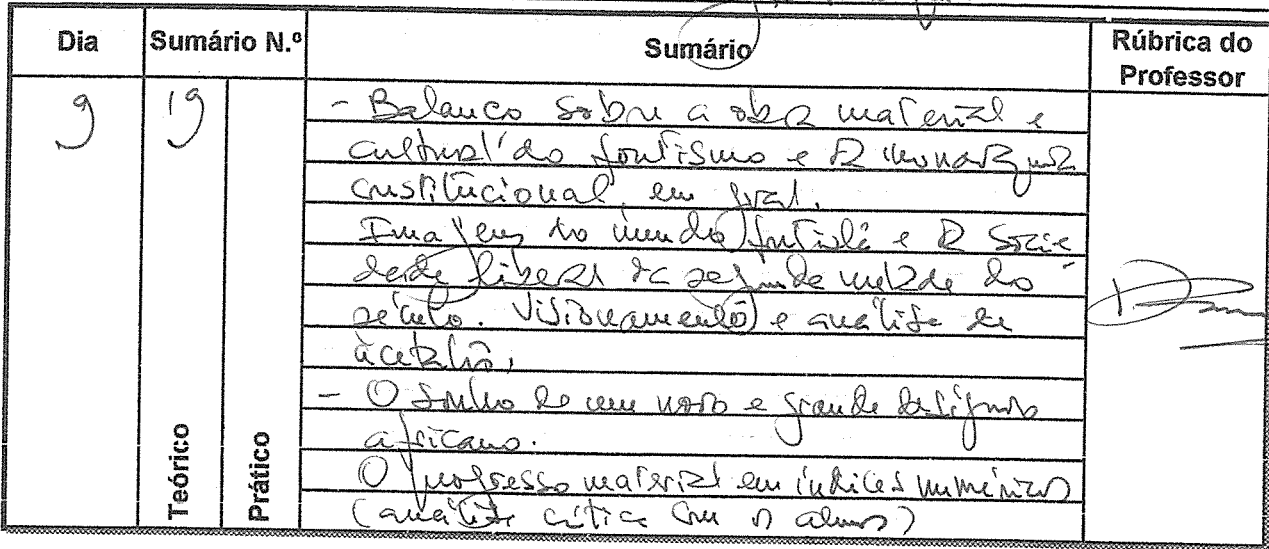 Dia Sumário N.º Sumário Rúbrica do Professor
9 19
- Balanço sobre a obra material e
cultural do fontismo e da monarquia
constitucional, em geral.
Imagens do mundo e da socie
dade liberal da segunda metade do
século. Visionamento e análise de
acetatos.
- O sonho de um novo e grande desígnio
africano.
O progresso material em índices numéricos
(análise crítica com os alunos)
Teórico
Prático